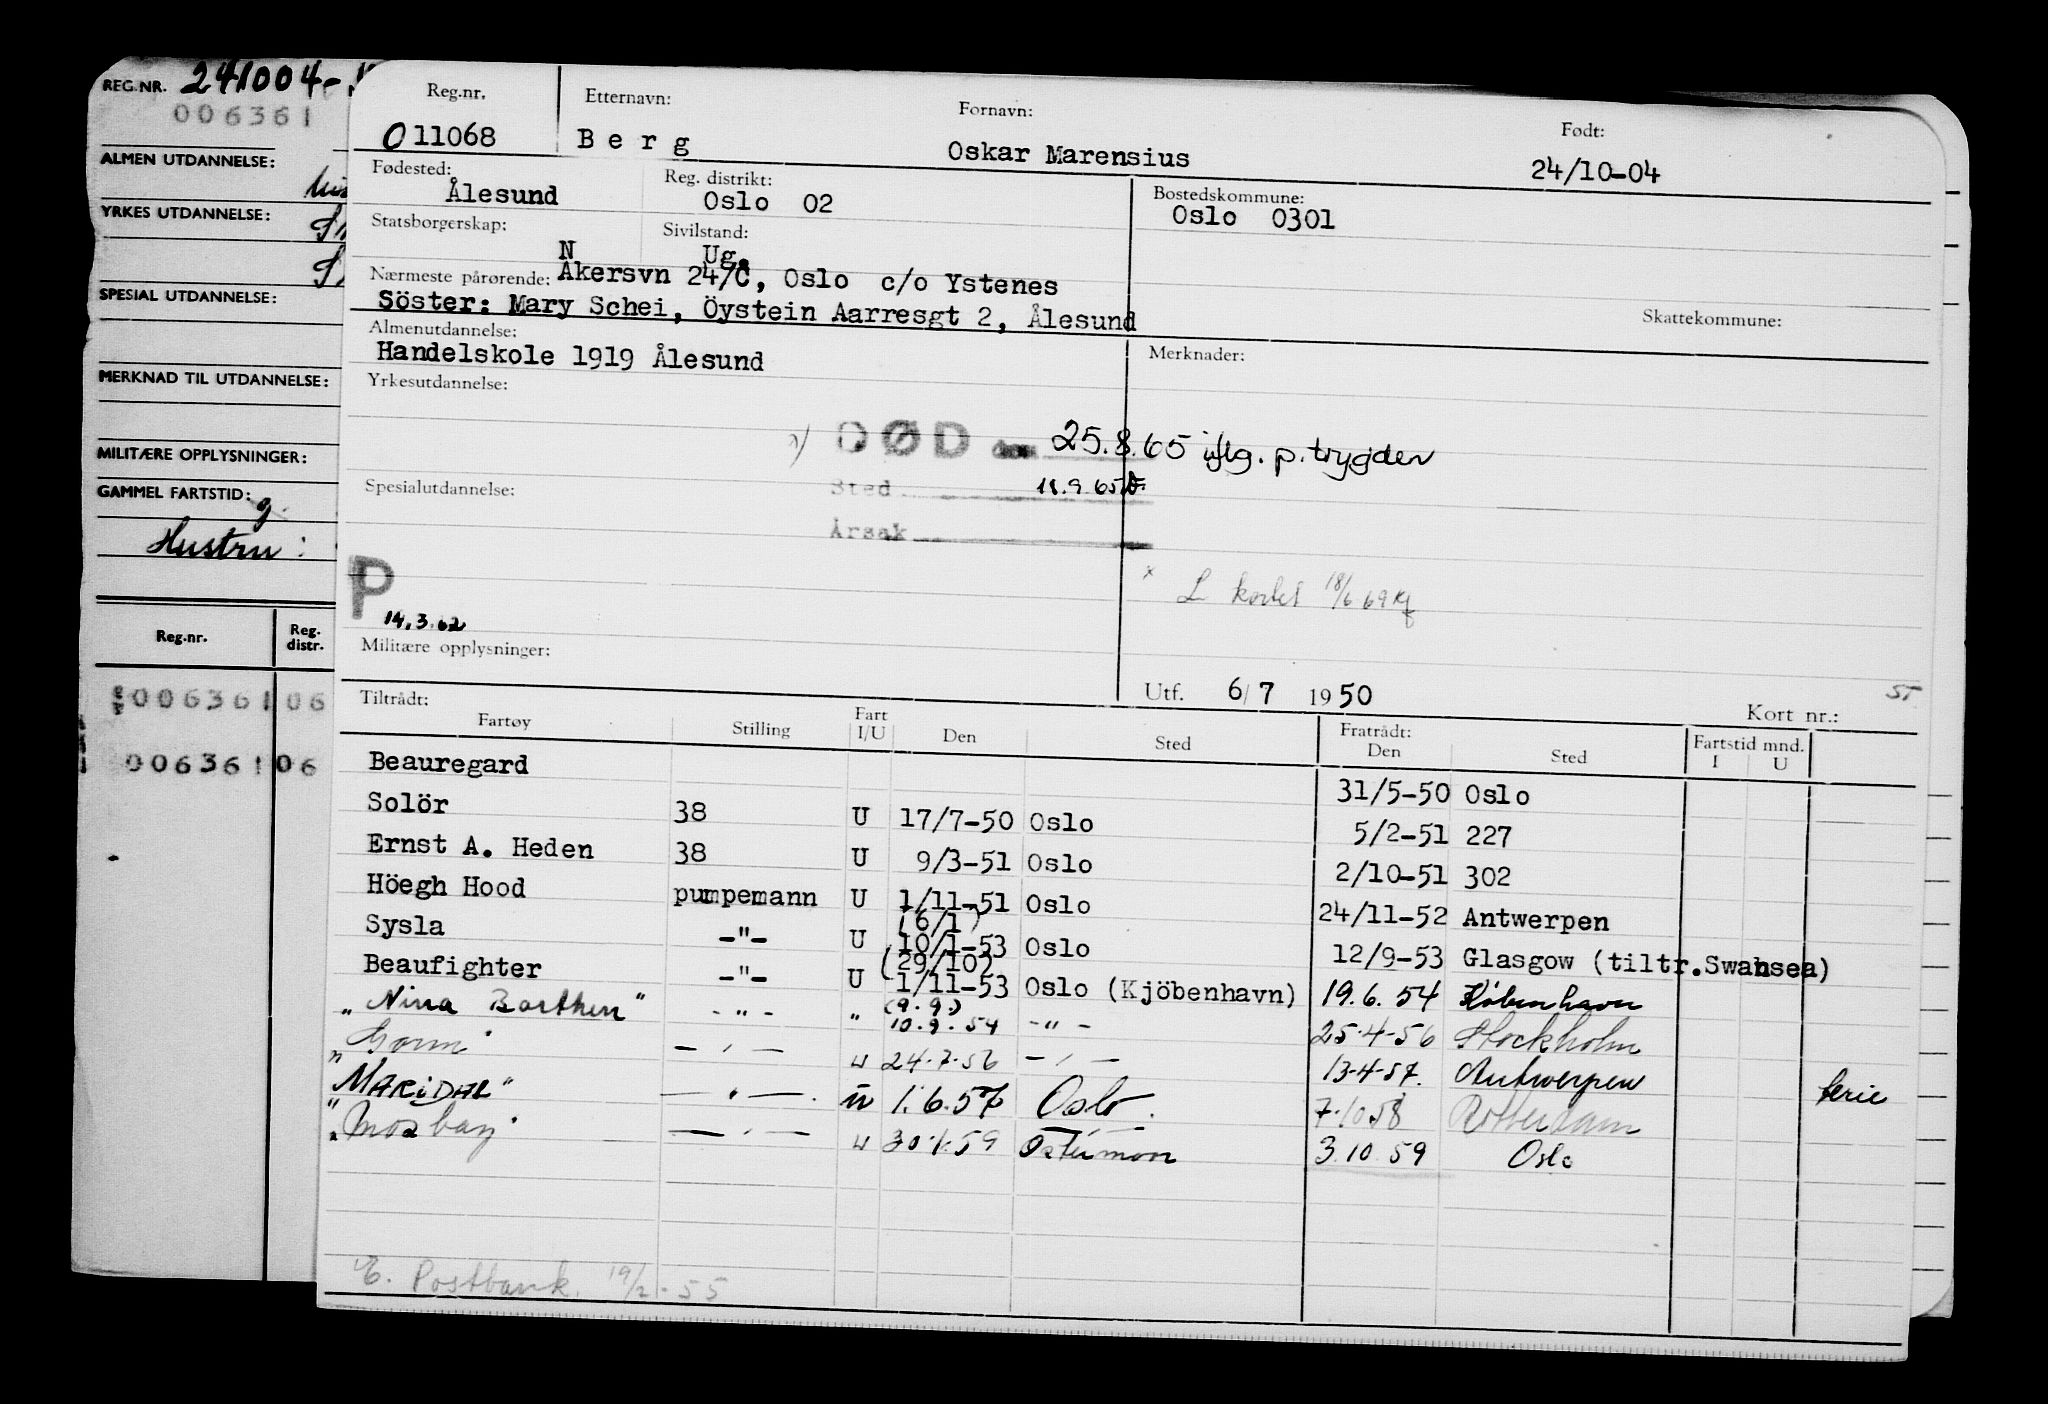 REG.NR. 241004-
006361
ALMEN UTDANNELSE:
YRKES UTDANNELSE:
SPESIAL UTDANNELSE:
MERKNAD TIL UTDANNELSE:
MILITÆRE OPPLYSNINGER:
GAMMEL FARTSTID:
g.
Hustru:
Reg.nr. Reg. distr.
006361 06
006361 06
Reg.nr. Etternavn: Fornavn: Født:
011068 Berg Oskar Marensius 24/10-04
Fødested: Reg. distrikt: Bostedskommune:
Ålesund Oslo 02 Oslo 0301
Statsborgerskap: Sivilstand:
N Ug.
Nærmeste pårørende: Akersvn 24/C, Oslo c/o Ystenes
Söster: Mary Schei, Öystein Aarresgt 2, Ålesund Skattekommune:
Almenutdannelse: Merknader:
Handelskole 1919 Ålesund
Yrkesutdannelse:
DØD den 25.8.65 iflg. p.trygden
Spesialutdannelse: Sted 18.9.65
Årsak
P
x L kortet 18/6 69
14.3.62
Militære opplysninger:
Utf. 6/7 1950 ST
Kort nr.:
Tiltrådt: Fratrådt:
Fartøy Stilling Fart I/U Den Sted Den Sted Fartstid mnd. I U
Beauregard 31/5-50 Oslo
Solör 38 U 17/7-50 Oslo 5/2-51 227
Ernst A. Heden 38 U 9/3-51 Oslo 2/10-51 302
Höegh Hood pumpemann U 1/11-51 Oslo 24/11-52 Antwerpen
Sysla -"- U (6/1) 10/1-53 Oslo 12/9-53 Glasgow (tiltr.Swansea)
Beaufighter -"- U (29/10) 1/11-53 Oslo (Kjöbenhavn) 19.6.54 København
"Nina Borthen" -"- " (9.9.) 10.9.54 -"- 25.4-56 Stockholm
"Gorm" -"- U 24.7.56 -"- 13-4-57. Antwerpen
"MARIDAL" -"- U 1.6.57 Oslo. 7.10.58 Rotterdam ferie
"Mosbay" -"- U 30.1.59 3.10.59 Oslo
E. Postbank. 19/2-55